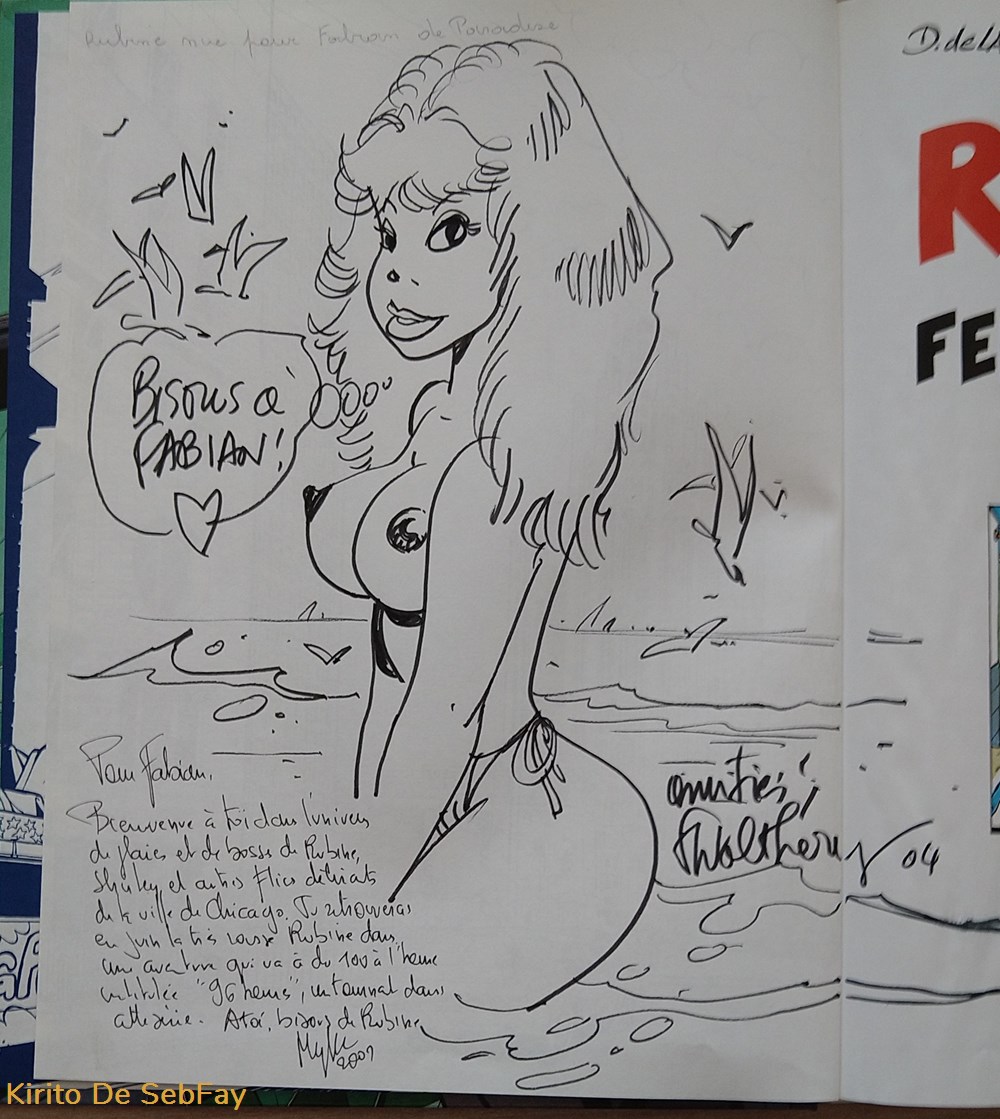 Rubine nue pour Fabian de Paradize !
D. de LA
R
FE
BISOUS à
FABIAN !
Pour Fabian,
Bienvenue à toi dans l'univers
de plaies et de bosses de Rubine,
Shirley et autres flics déliciats
de la ville de Chicago. Tu retrouveras
en juin la très rousse Rubine dans
une aventure qui va à du 100 à l'heure
intitulée "96 heures", un tournant dans
cette série. A toi, bisous de Rubine,
2001
amitiés !
Walthéry 04
Kirito De SebFay